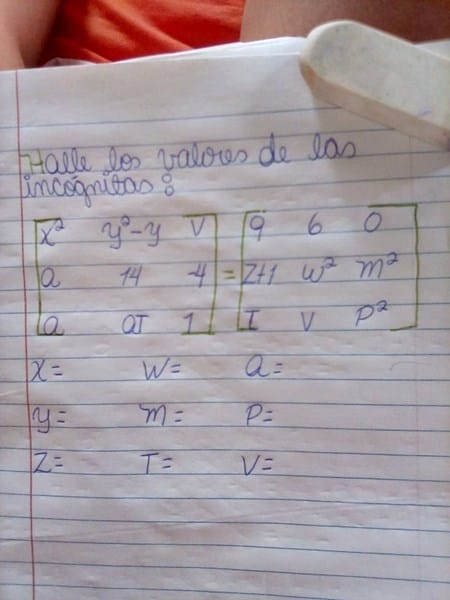 Halle los valores de las
incógnitas:
x² y²-y V = 9 6 0
a 14 -4 = Z+1 w² m²
a aT 1 = I V P²
x= W= a=
y= m= P=
Z= T= V=